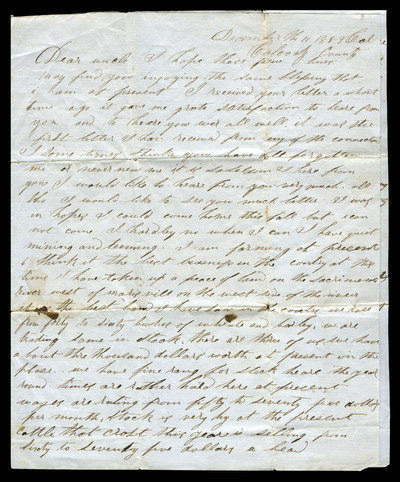 December th 11 1853 Cal
Caloosy County
Dear uncle I hope these fiew lines
may find you injoying the same blessing that
i am at present I received your letter a short
time ago it gave me grate satisfaction to heare from
you and to heare you wer all well it was the
first letter I have receive from any of the connection
I some times thinke you have all forgotten
me or never new me it is so seldom I here from
you I would like to heare from you very much. all
tho I would like to see you much better I was
in hopes I could come home this fall but i can
not come I hardley no when I can I have quit
mining and teeming. I am farming at present
i think it the best buisness in the contry at this
time I have taken up a peace of land on the Sacrimento
river west of marisvill on the west side of the river
the best land I have saw in the contry we rase
from forty to sixty bushels of wheate and barley, we are
trading some in stock. there are three of us we have
about three thousand dollars worth at present on the
place. we have fine range for stock heare the year
round times are rather hard here at present
wages are rating from fifty to seventy five dollars
per month, stock is very hy at the present
cattle that crost this year is selling from
sixty to seventy five dollars a head